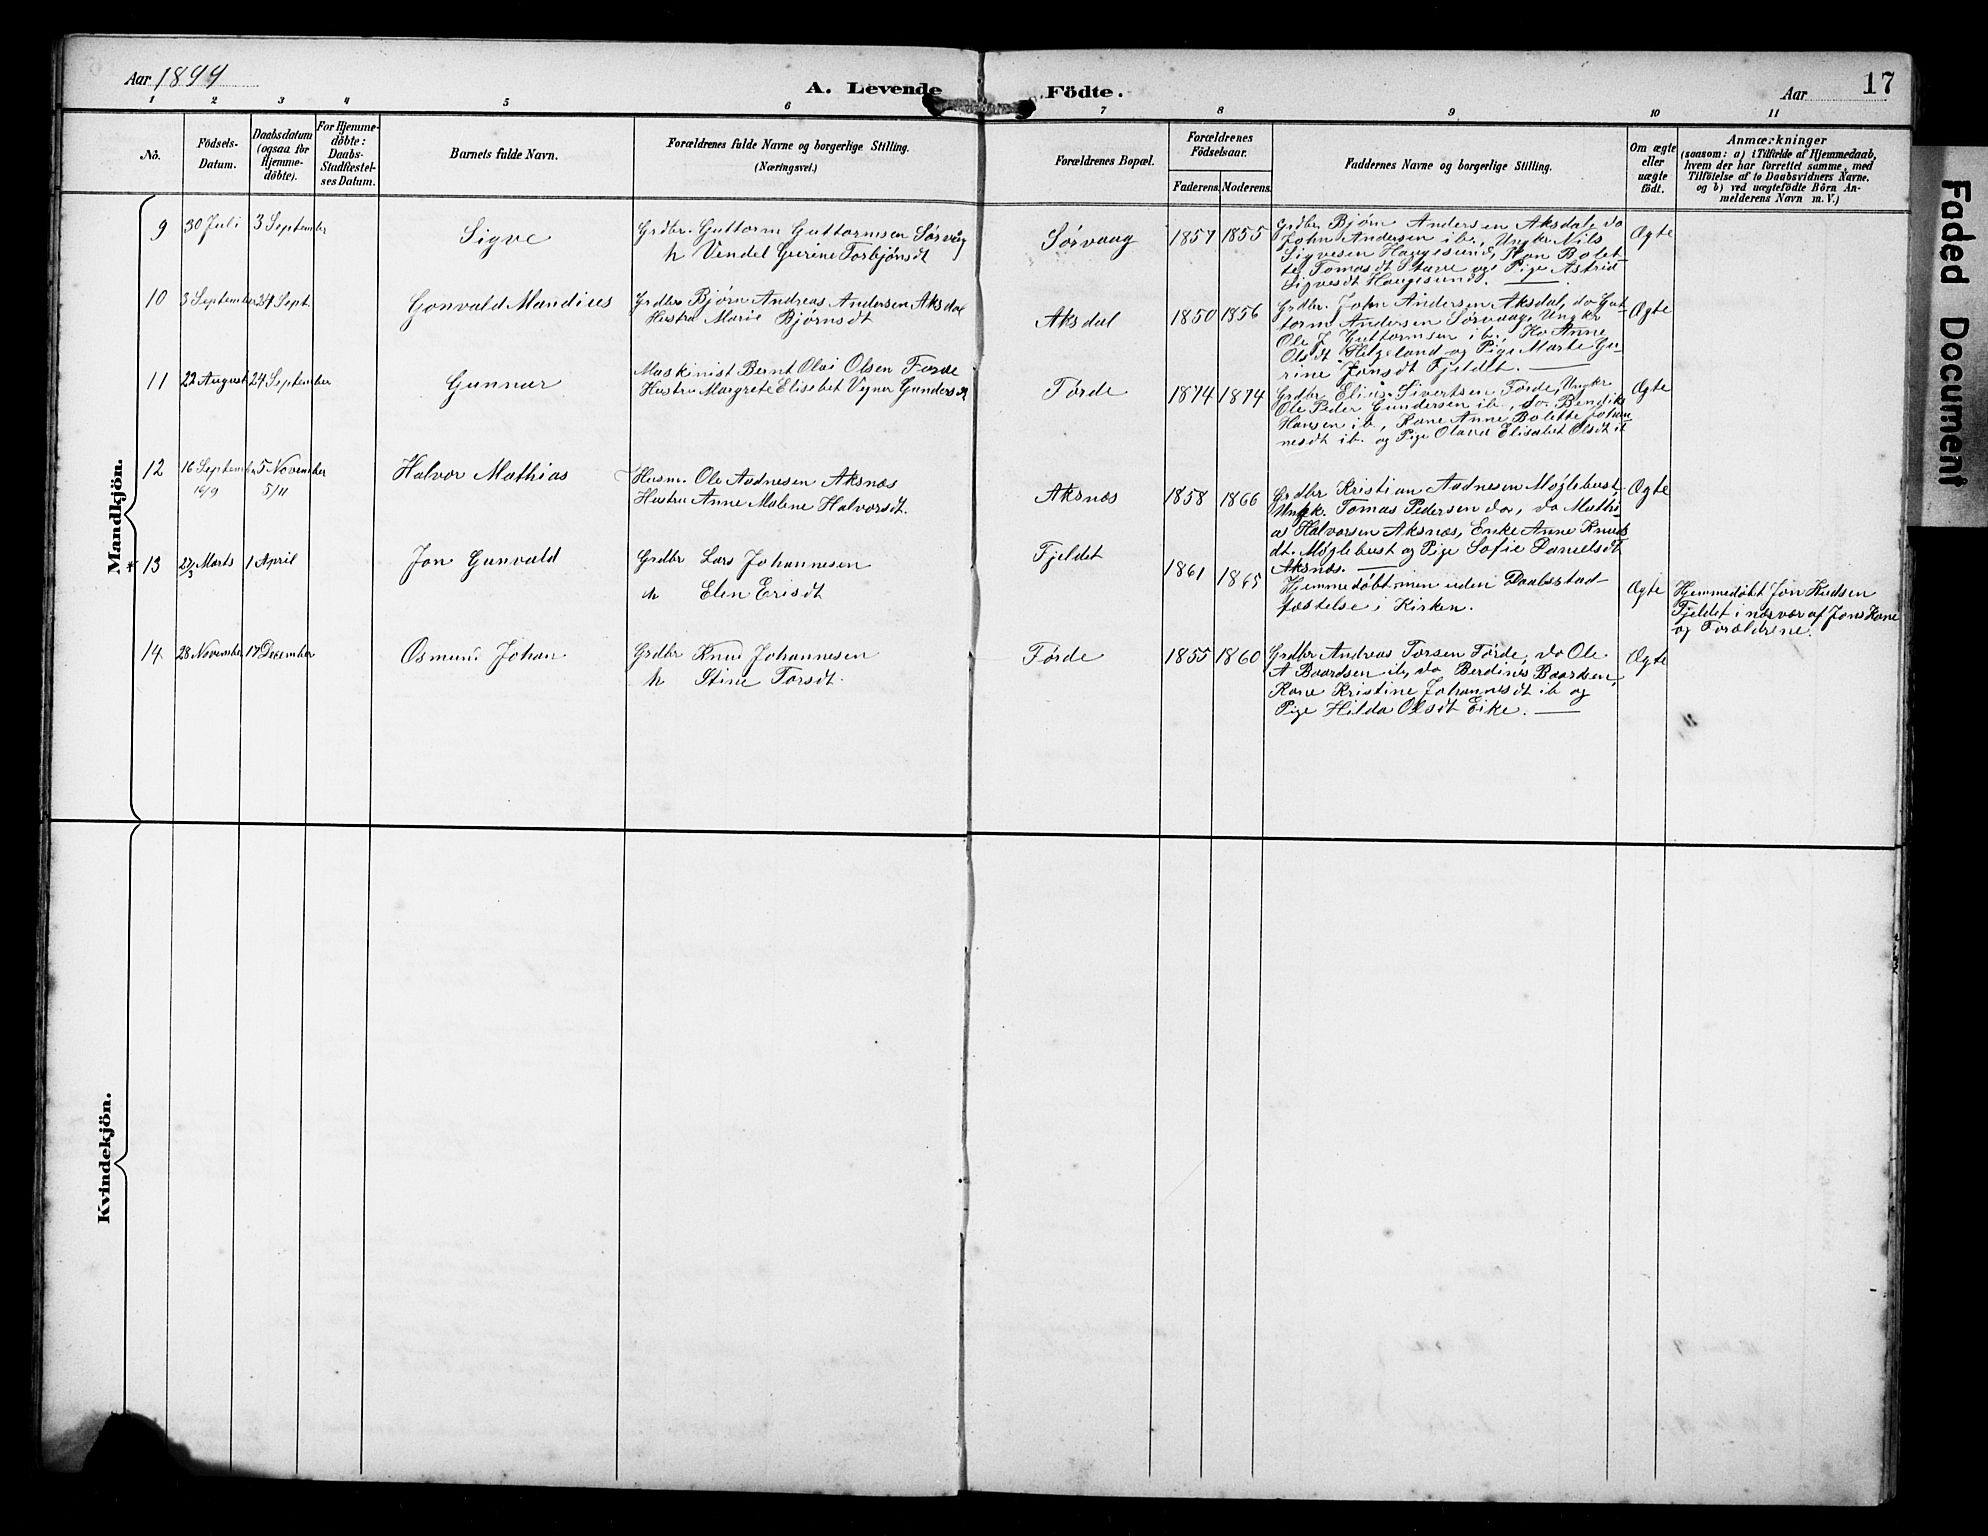 Aar 1899
A. Levende Födte.
Aar
17
1 2 3 4 5 6 7 8 9 10 11
No.
Födsels-
Datum.
Daabsdatum
(ogsaa for
Hjemme-
döbte).
For Hjemme-
döbte:
Daabs-
Stadfæstel-
ses Datum.
Barnets fulde Navn.
Forældrenes fulde Navne og borgerlige Stilling.
(Næringsvei.)
Forældrenes Bopæl.
Forældrenes
Födselsaar.
Faderens. Moderens.
Faddernes Navne og borgerlige Stilling.
Om ægte
eller
uægte
födt.
Anmærkninger
(saasom: a) i Tilfælde af Hjemmedaab,
hvem der har forrettet samme, med
Tilföielse af to Daabsvidners Navne.
og b) ved uægtefödte Börn An-
melderens Navn m. V.)
Mandkjön.
9
30 Juli
3 September
Sigve
Grdbr. Guttorm Guttormsen Sørvåg
h Vendel Gurine Torbjønsdt
Sørvaag
1857
1855
Grdbr Bjørn Andersen Aksdal, do
John Andersen ib., Ungkr. Nils
Sigvesen Haugesund, Kon Bolet-
te Tomasdt Stave og Pige Astrid
Sigvesdt Haugesund.
Ægte
10
3 September
24 Sept.
Gonvald Mandius
Grdbr Bjørn Andreas Andersen Aksdal
Hustru Marie Bjørnsdt
Aksdal
1850
1856
Grdbr. John Andersen Aksdal, do Gut-
torm Andersen Sørvaag, Ungkr
Ole J. Guttormsen ib., Ko Anne
Olsdt Helgeland og Pige Marte Gu-
rine Jonsdt Fjeldet.
Ægte
11
22 August
24 September
Gunnar
Maskinist Bernt Olai Olsen Førde
Hustru Margrete Elisabet Vigner Gundersdt
Førde
1874
1874
Grdbr Elias Sivertsen Førde, Ungkr
Ole Peder Gundersen ib., do. Bendik
Hansen ib., Kone Anne Bolette Johan-
nesdt ib. og Pige Olava Elisabet Olsdt ib
Ægte
12
16 September
16/9
5 November
5/11
Halvor Mathias
Husm. Ole Aadnesen Aksnæs
Hustru Anne Malene Halvorsdt.
Aksnæs
1858
1866
Grdbr Kristian Aadnesen Møglebust,
Ungk. Tomas Pedersen do, do Mathi-
as Halvorsen Aksnæs, Enke Anne Knuds
dt. Møglebust og Pige Sofie Danielsdt
Aksnæs.
Ægte
* 13
27/3 Marts
1 April
Jon Gunvald
Grdbr Lars Johannesen
h Elen Erisdt
Fjeldet
1861
1865
Hjemmedøbt, men uden Daabsstad-
fæstelse i Kirken.
Ægte
Hjemmedøbt Jon Knudsen
Fjeldet i nærvær af Jons Kone
og Forældrene.
14
28 November
17 December
Osmund Johan
Grdbr Knud Johannesen
h Stine Torsdt.
Førde
1855
1860
Grdbr Andreas Torsen Førde, do Ole
A Baardsen ib, do Berdines Baardsen,
Kone Kristine Johannesdt ib og
Pige Hilda Olsdt Eike.
Ægte
Kvindekjön.
Faded Document